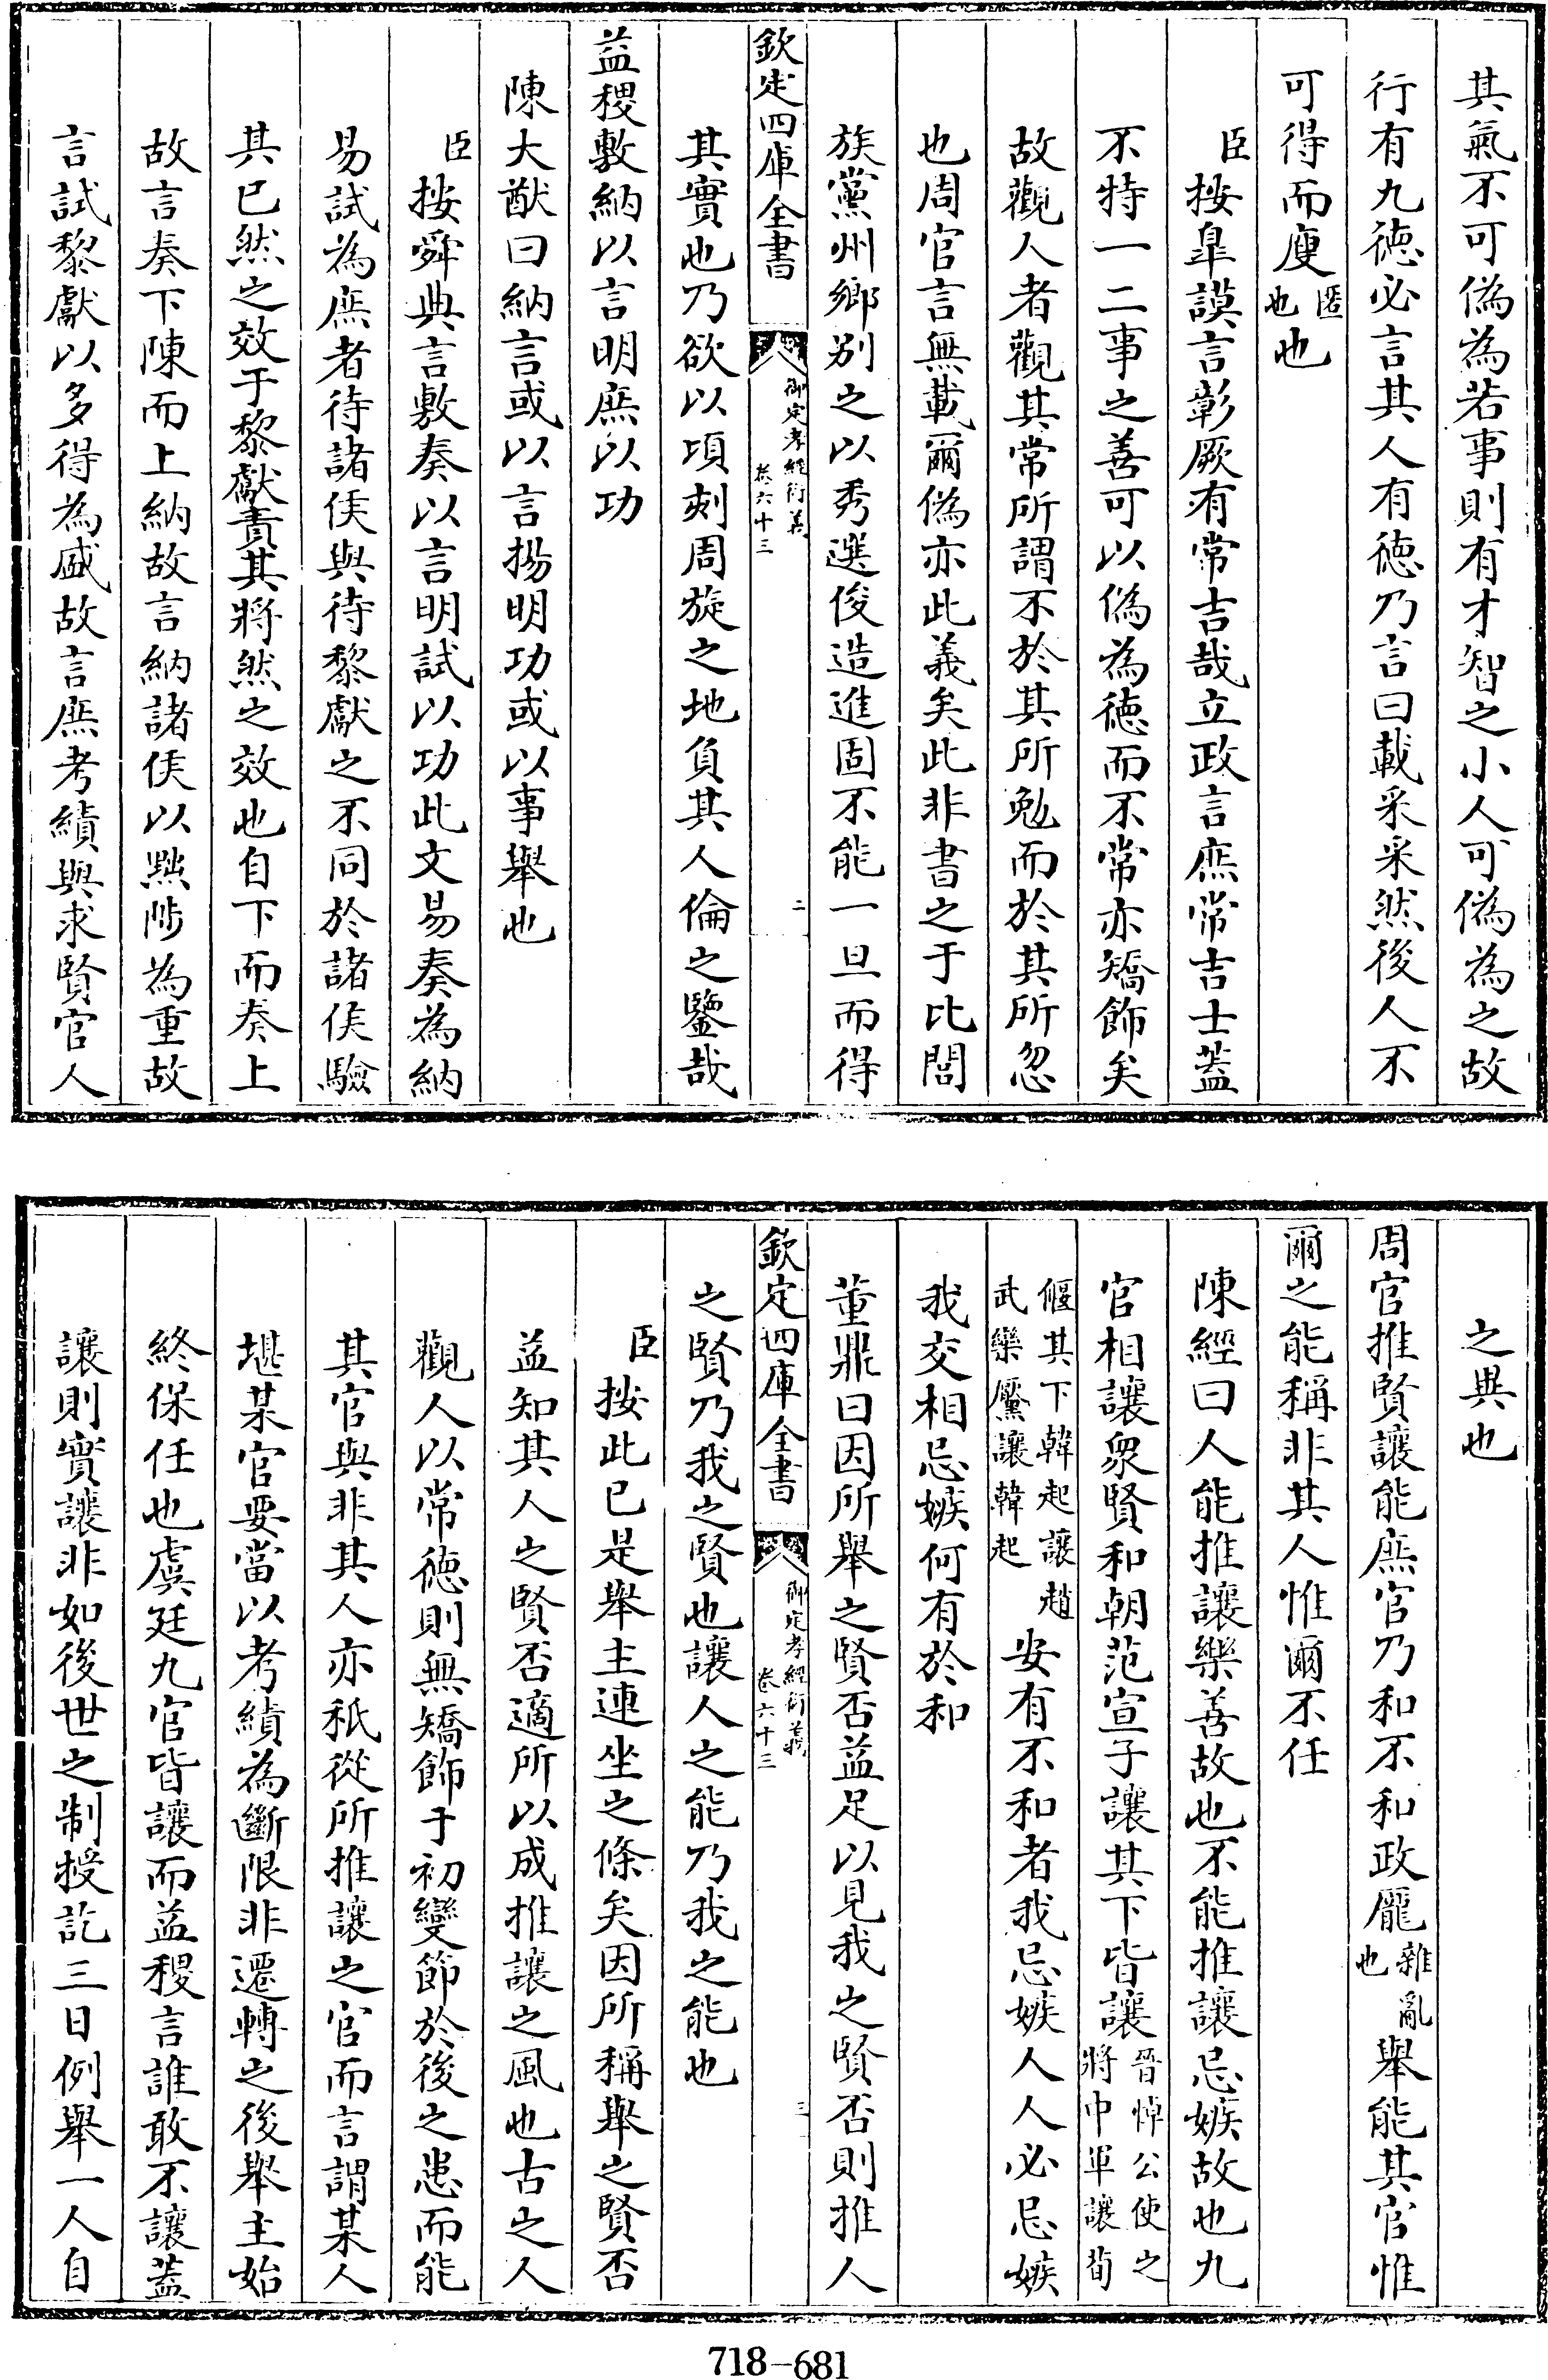 其氣不可偽為若事則有才智之小人可偽為之故
行有九徳必言其人有徳乃言曰載采采然後人不
可得而廋匿也也
臣按臯謨言彰厥有常吉哉立政言庶常吉士葢
不特一二事之善可以偽為徳而不常亦矯飾矣
故觀人者觀其常所謂不於其所勉而於其所忽
也周官言無載爾偽亦此義矣此非書之于比閭
族黨州鄉别之以秀選俊造進固不能一旦而得
欽定四庫全書
御定孝經衍義
卷六十三
二
其實也乃欲以頃刻周旋之地負其人倫之鑒哉
益稷敷納以言明庶以功
陳大猷曰納言或以言揚明功或以事舉也
臣按舜典言敷奏以言明試以功此文易奏為納
易試為庶者待諸侯與待黎獻之不同於諸侯驗
其已然之效于黎獻責其將然之效也自下而奏上
故言奏下陳而上納故言納諸侯以黜陟為重故
言試黎獻以多得為盛故言庶考績與求賢官人
之異也
周官推賢讓能庶官乃和不和政厖雜亂也舉能其官惟
爾之能稱非其人惟爾不任
陳經曰人能推讓樂善故也不能推讓忌嫉故也九
官相讓衆賢和朝范宣子讓其下皆讓晉悼公使之將中軍讓荀
偃其下韓起讓趙武欒黶讓韓起安有不和者我忌嫉人人必忌嫉
我交相忌嫉何有於和
董鼎曰因所舉之賢否益足以見我之賢否則推人
欽定四庫全書
御定孝經衍義
卷六十三
三
之賢乃我之賢也讓人之能乃我之能也
臣按此已是舉主連坐之條矣因所稱舉之賢否
益知其人之賢否適所以成推讓之風也古之人
觀人以常徳則無矯飾于初變節於後之患而能
其官與非其人亦秖從所推讓之官而言謂某人
堪某官要當以考績為斷限非遷轉之後舉主始
終保任也虞廷九官皆讓而益稷言誰敢不讓葢
讓則實讓非如後世之制授訖三日例舉一人自
718-681